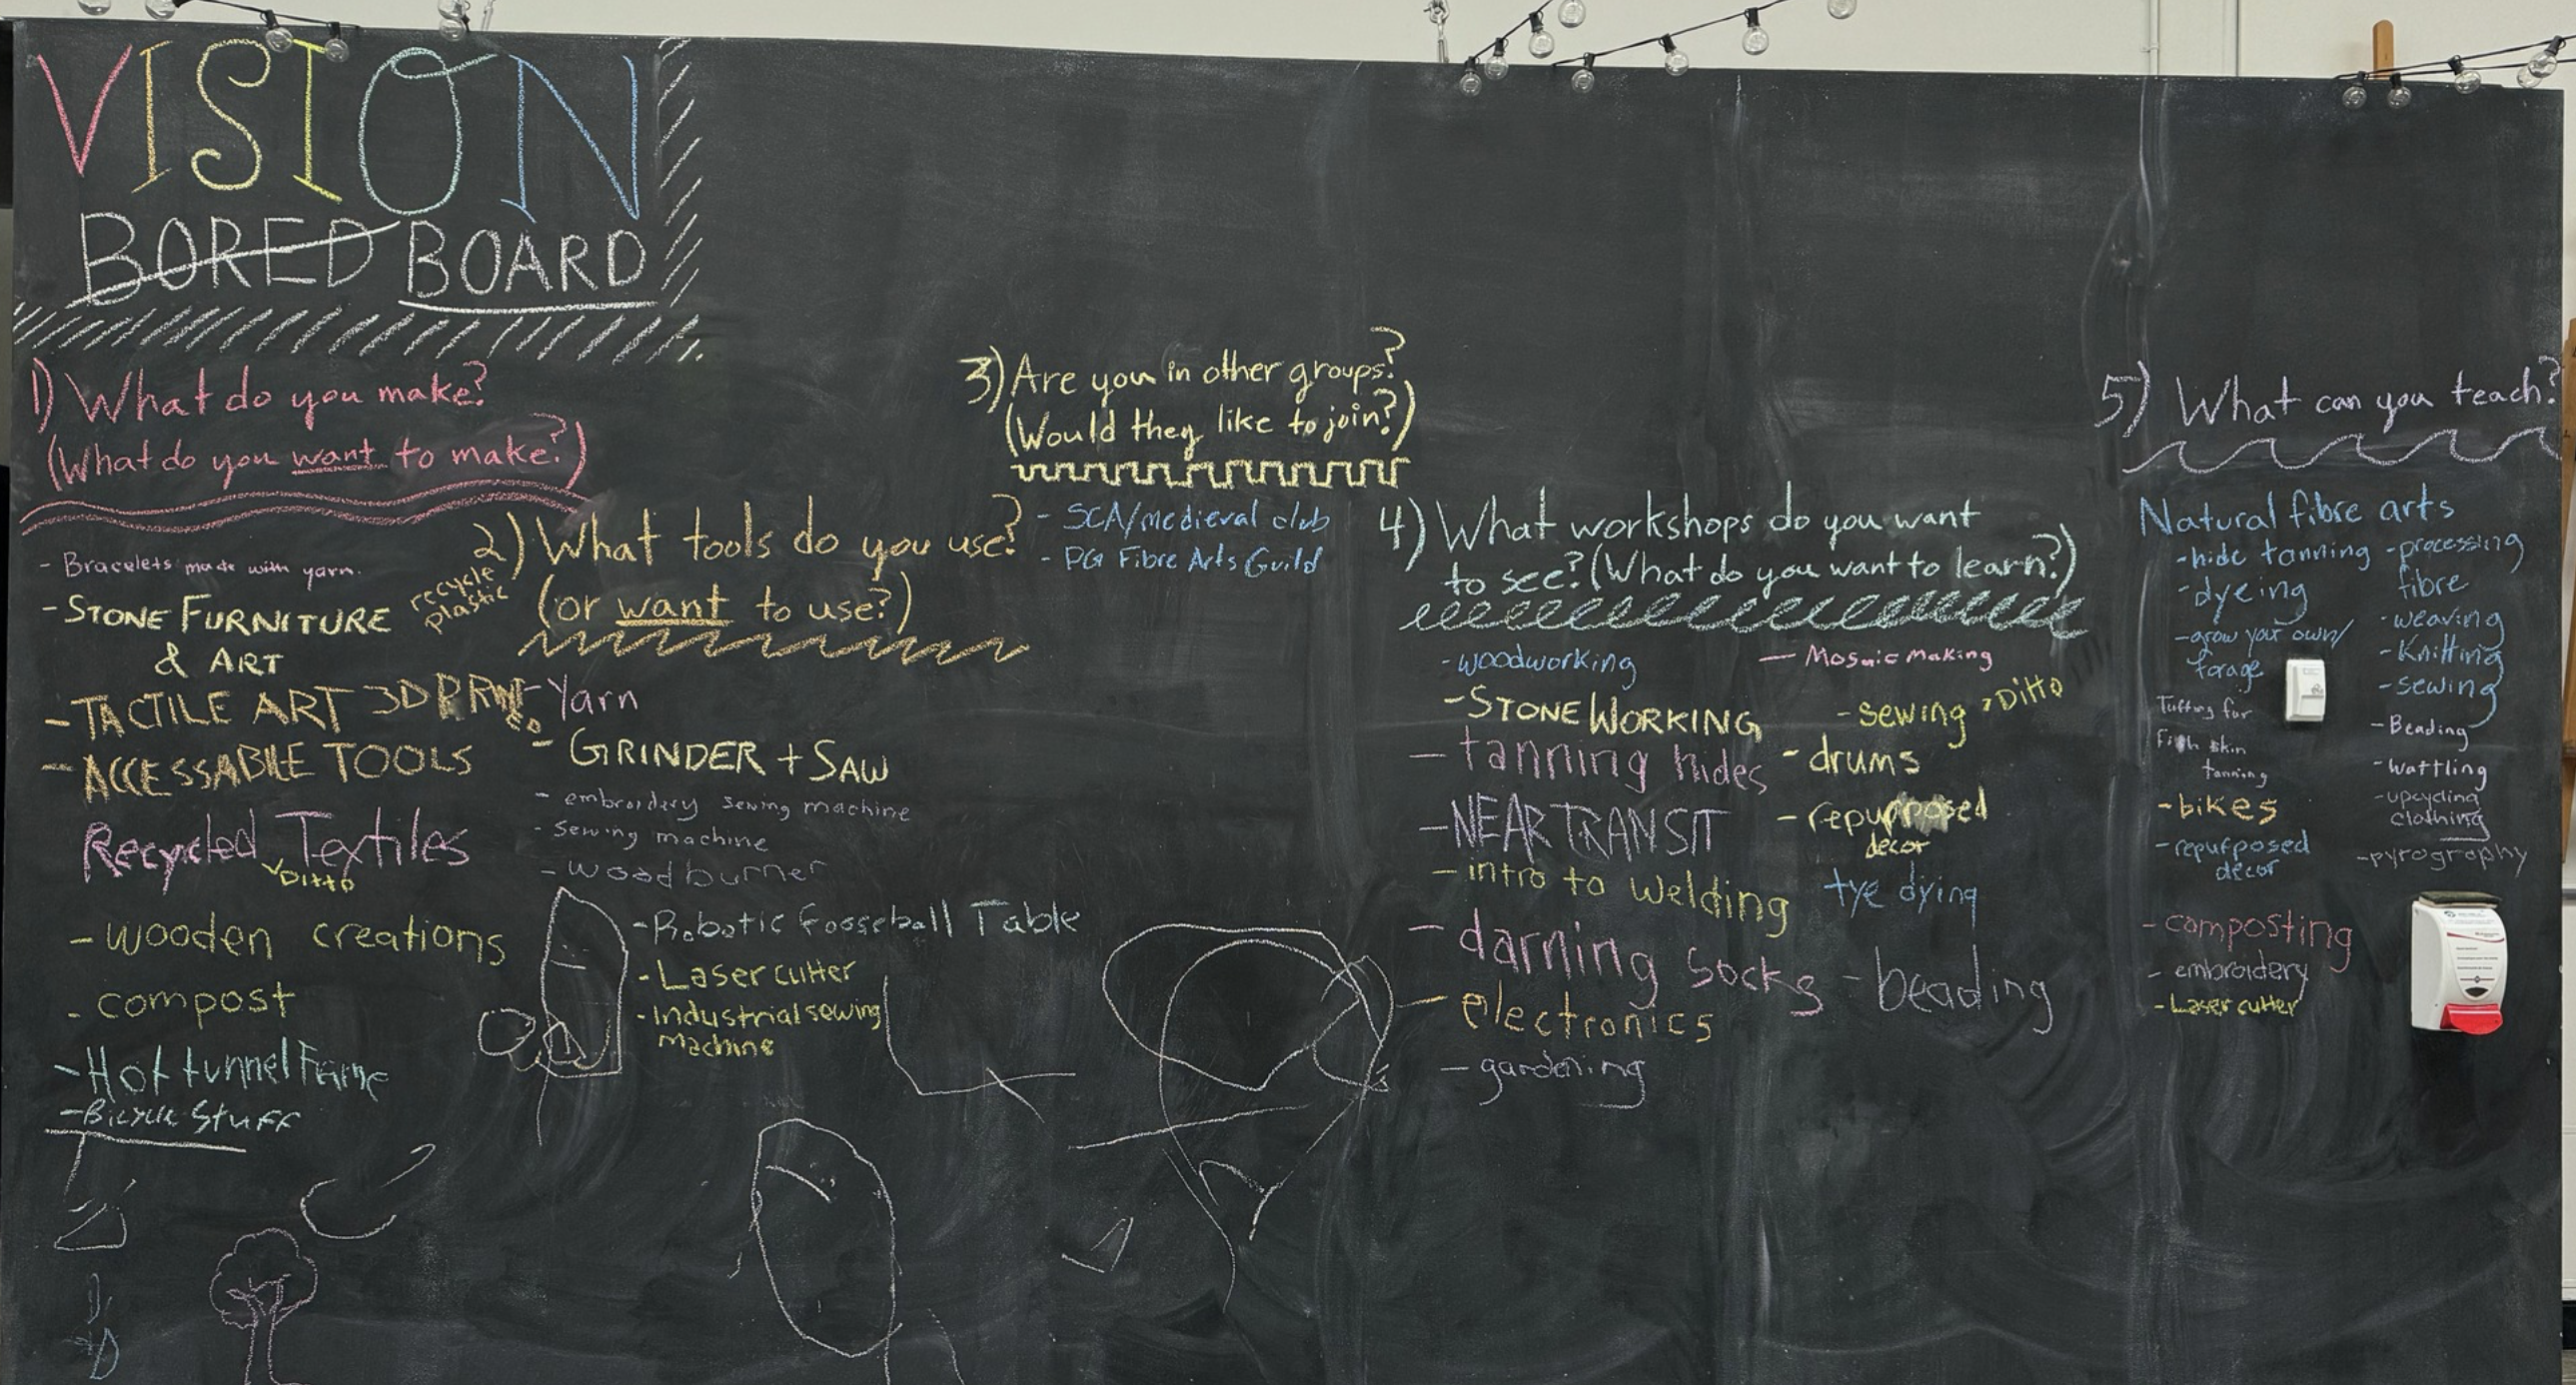 VISION
BORED BOARD
1) What do you make?
(What do you want to make?)
- Bracelets made with yarn.
- STONE FURNITURE
& ART
recycle
plastic
- TACTILE ART 3D PRINT
ED
- ACCESSABLE TOOLS
Recycled Textiles
Ditto
- wooden creations
- compost
- Hot tunnel Frame
- Bicycle Stuff
2) What tools do you use?
(or want to use?)
- Yarn
- GRINDER + SAW
- embroidery sewing machine
- Sewing machine
- woodburner
- Robotic fooseball Table
- Laser cutter
- Industrial sewing
machine
3) Are you in other groups?
(Would they like to join?)
- SCA/medieval club
- PG Fibre Arts Guild
4) What workshops do you want
to see? (What do you want to learn?)
- woodworking
- STONE WORKING
- tanning hides
- NEAR TRANSIT
- intro to welding
- darning socks
- electronics
- gardening
- Mosaic Making
- sewing
Ditto
- drums
- repurposed
decor
tye dying
- beading
5) What can you teach?
Natural fibre arts
- hide tanning
- dyeing
- grow your own/
forage
Tufting fur
Fish skin
tanning
- bikes
- repurposed
decor
- composting
- embroidery
- Laser cutter
- processing
fibre
- weaving
- Knitting
- sewing
- Beading
- wattling
- upcycling
clothing
- pyrography